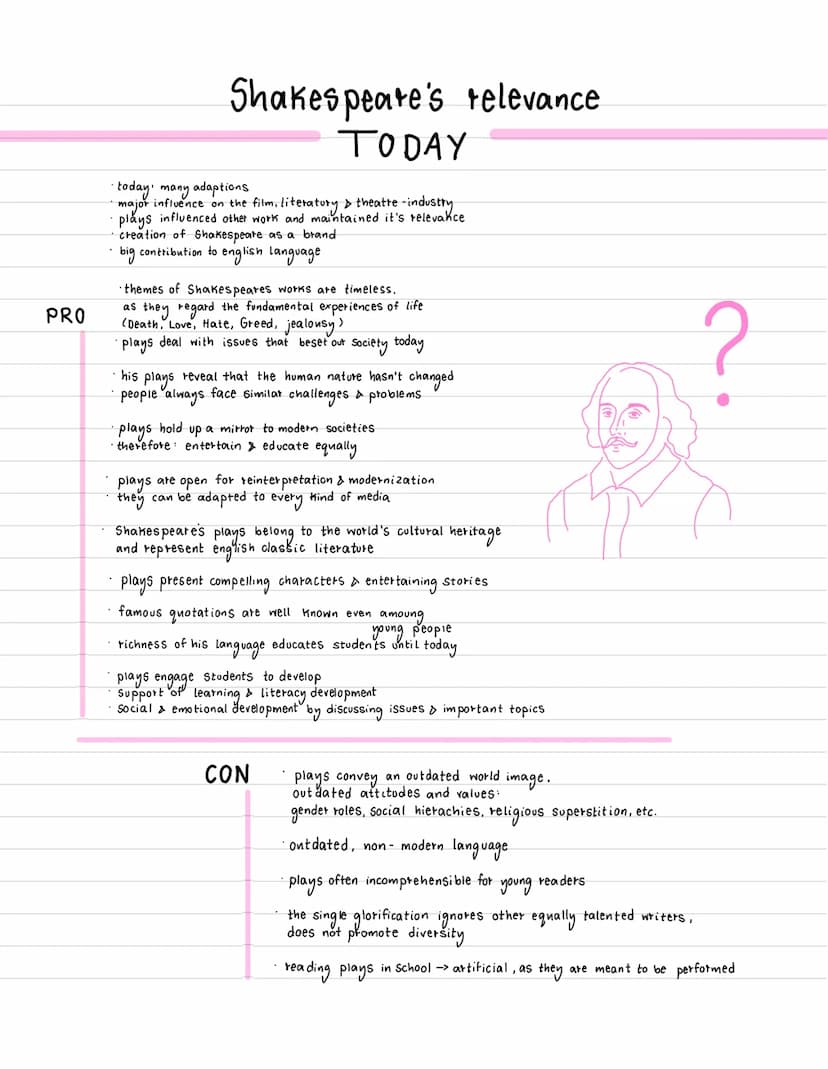 Shakespeare's relevance
TODAY
· today: many adaptions
· major influence on the film, literatury & theatre -industry
· plays influenced other work and maintained it's relevance
· creation of Shakespeare as a brand
· big contribution to english language
PRO
· themes of Shakespeares works are timeless,
as they regard the fundamental experiences of life
(Death, Love, Hate, Greed, jealousy)
· plays deal with issues that beset our society today
· his plays reveal that the human nature hasn't changed
· people always face similar challenges & problems
· plays hold up a mirror to modern societies
· therefore: entertain & educate equally
· plays are open for reinterpretation & modernization
· they can be adapted to every kind of media
· Shakespeare's plays belong to the world's cultural heritage
and represent english classic literature
· plays present compelling characters & entertaining stories
· famous quotations are well known even amoung
young people
· richness of his language educates students until today
· plays engage students to develop
· support of learning & literacy development
· social & emotional development by discussing issues & important topics
?
CON
· plays convey an outdated world image,
outdated attitudes and values:
gender roles, social hierachies, religious superstition, etc.
· outdated, non-modern language
· plays often incomprehensible for young readers
· the single glorification ignores other equally talented writers,
does not promote diversity
· reading plays in school → artificial, as they are meant to be performed